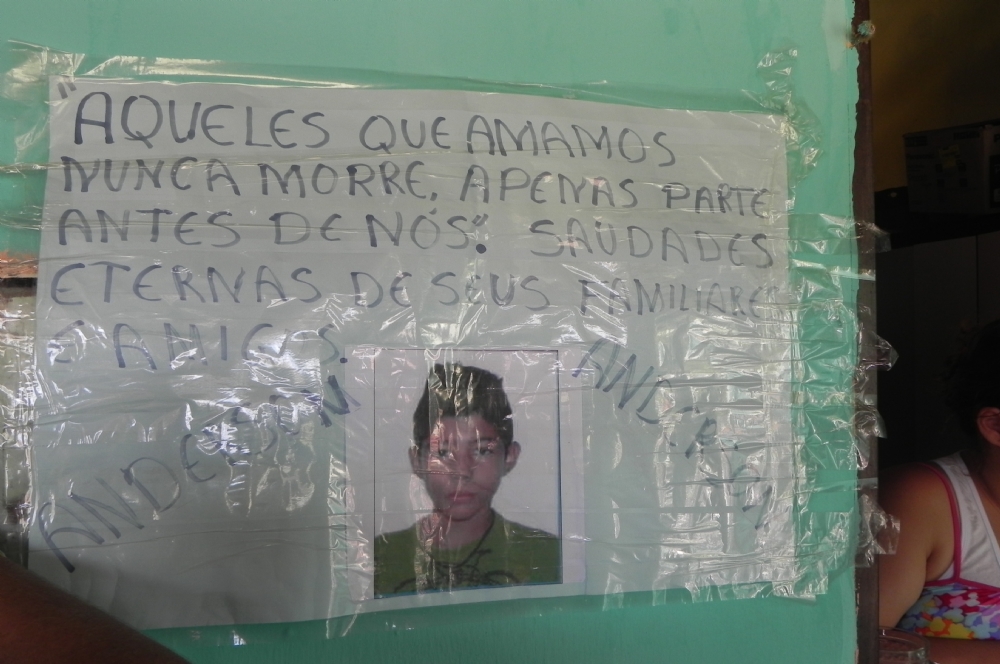 "AQUELES QUE AMAMOS
NUNCA MORRE, APENAS PARTE
ANTES DE NÓS". SAUDADES
ETERNAS DE SEUS FAMILIARES
E AMIGOS.
ANDERSON
ANDERSON